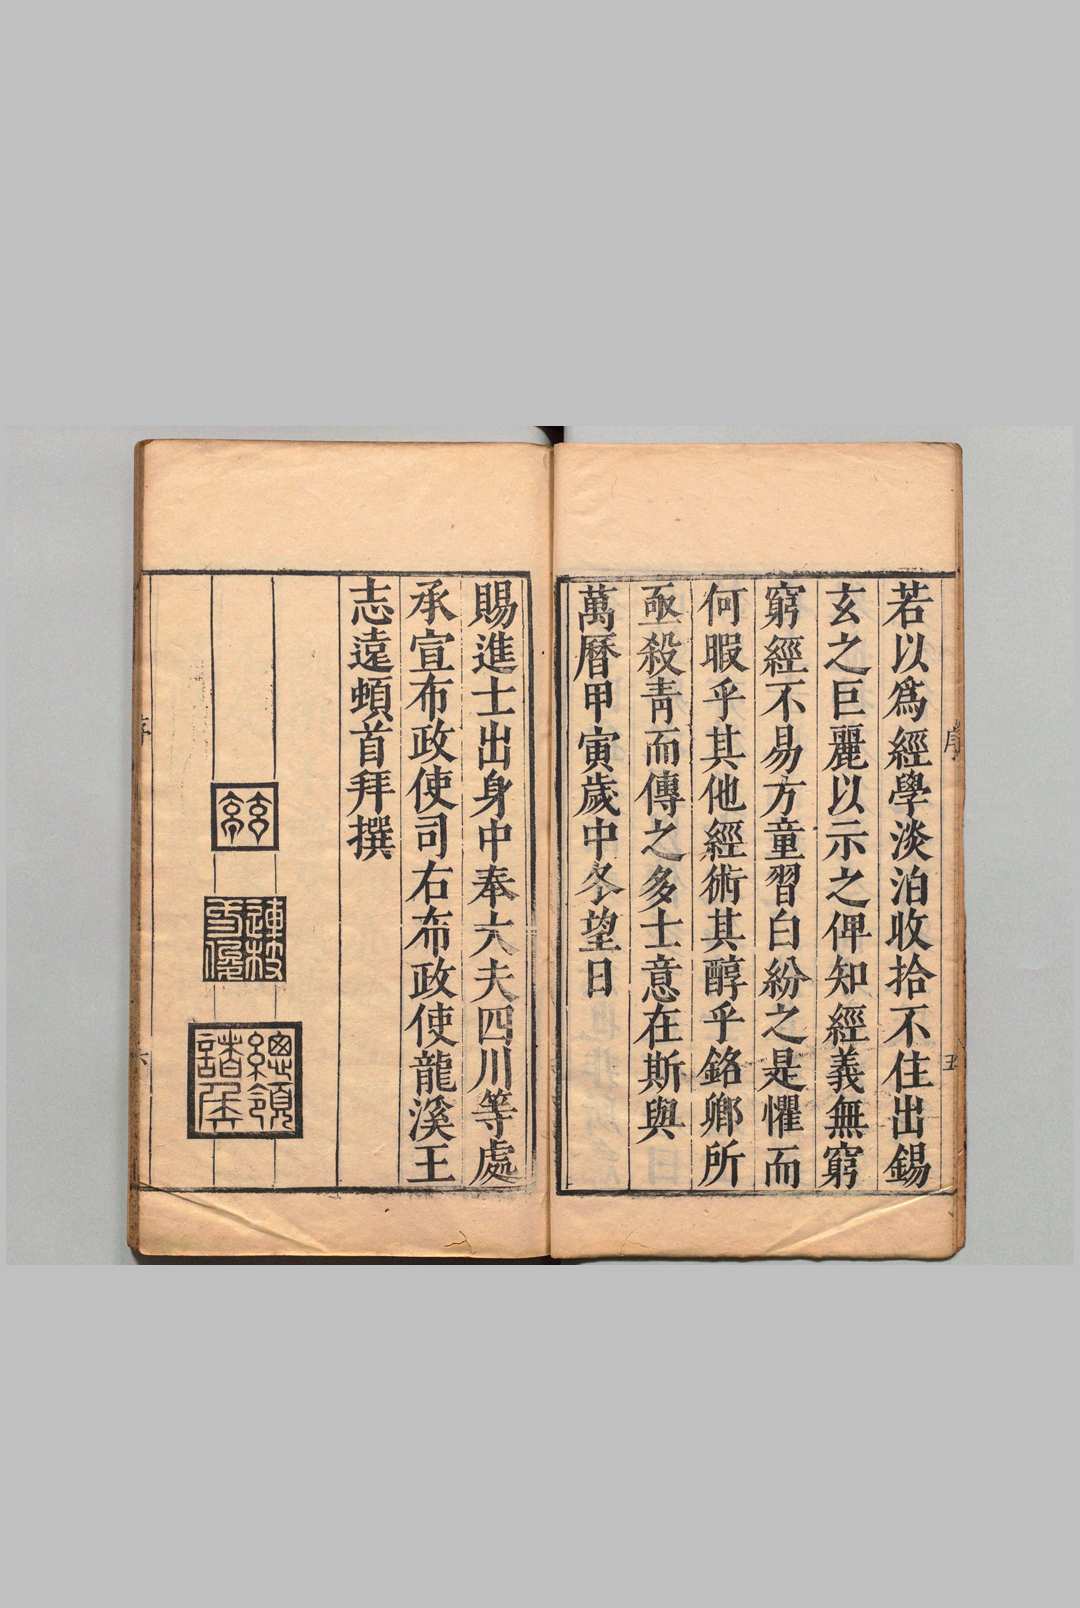 若以爲經學淡泊收拾不住出錫
玄之巨麗以示之俾知經義無窮
窮經不易方童習白紛之是懼而
何暇乎其他經術其醇乎銘鄉所
亟殺青而傳之多士意在斯與
萬曆甲寅歲中冬望日
賜進士出身中奉大夫四川等處
承宣布政使司右布政使龍溪王
志遠頓首拜撰
序
五